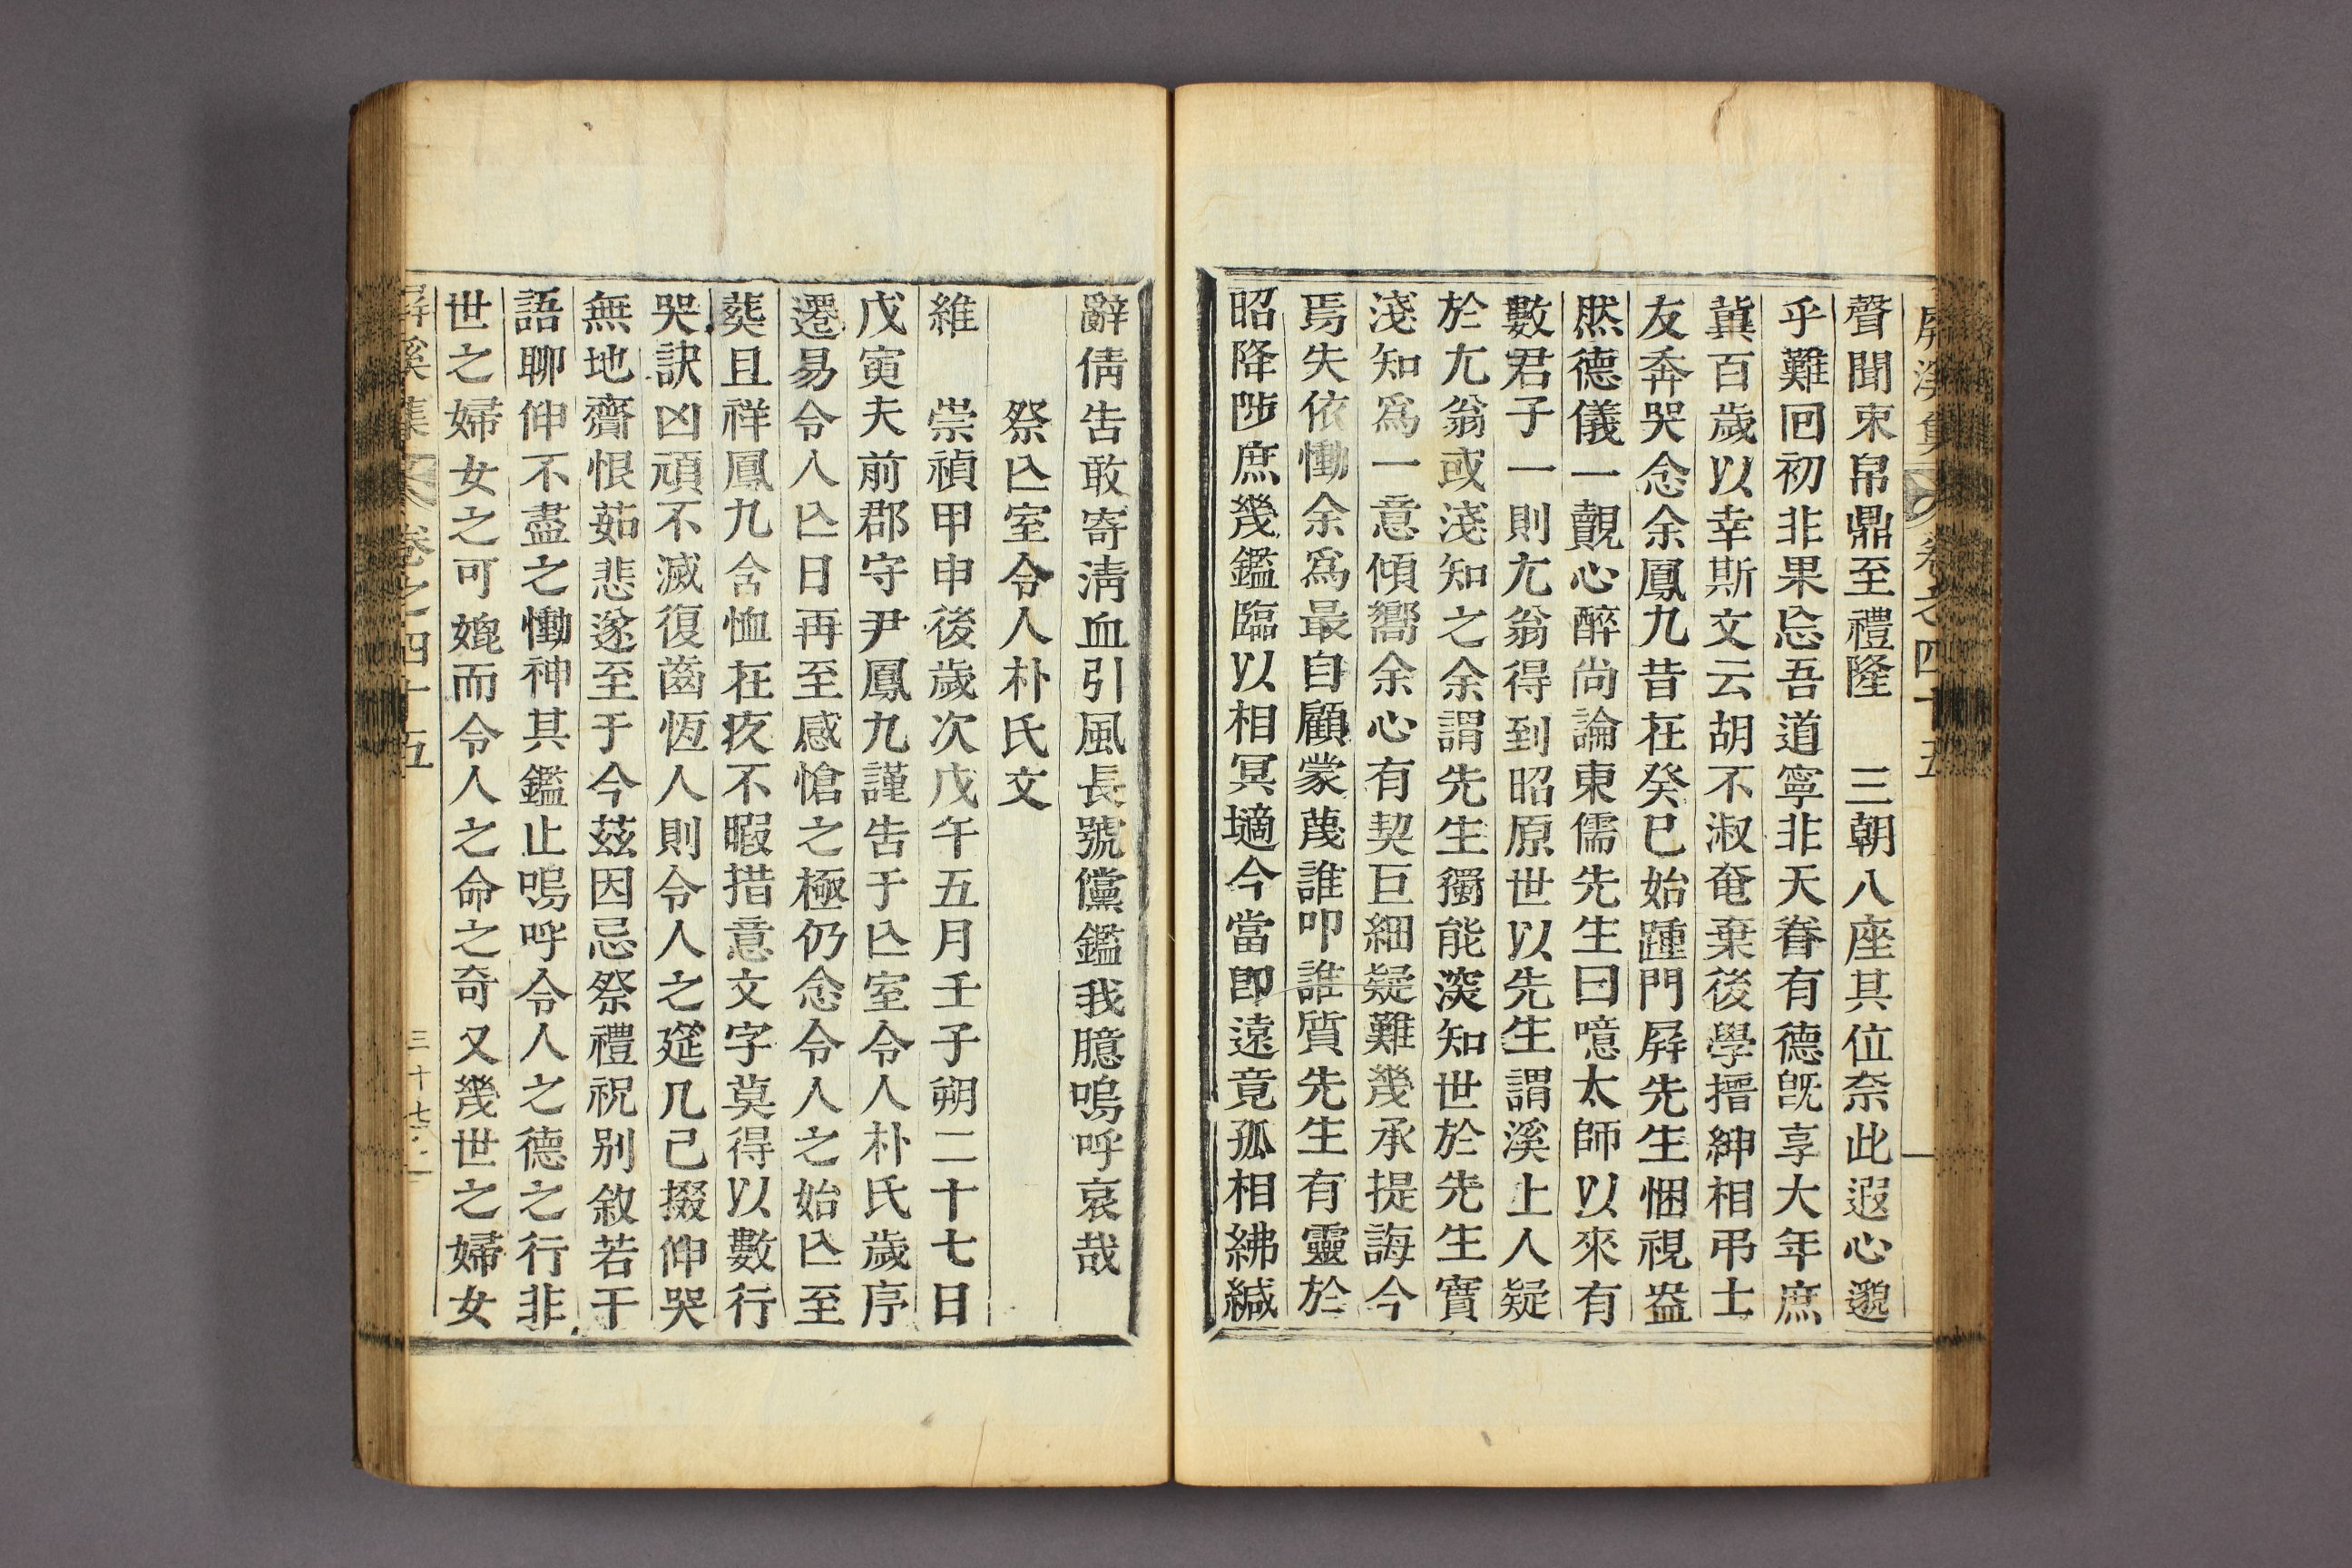 屛溪集 卷之四十五
聲聞束帛鼎至禮隆 三朝八座其位奈此遐心邈
乎難回初非果忘吾道寧非天眷有德旣享大年庶
冀百歲以幸斯文云胡不淑奄棄後學搢紳相弔士
友奔哭念余鳳九昔在癸巳始踵門屛先生悃視盎
然德儀一覿心醉尙論東儒先生曰噫太師以來有
數君子一則尤翁得到昭原世以先生謂溪上人疑
於尤翁或淺知之余謂先生獨能深知世於先生實
淺知爲一意傾嚮余心有契巨細疑難幾承提誨今
焉失依慟余爲最自顧蒙蔑誰叩誰質先生有靈於
昭降陟庶幾鑑臨以相冥擿今當卽遠竟孤相紼緘
辭倩告敢寄淸血引風長號儻鑑我臆嗚呼哀哉
祭亡室令人朴氏文
維 崇禎甲申後歲次戊午五月壬子朔二十七日
戊寅夫前郡守尹鳳九謹告于亡室令人朴氏歲序
遷易令人亡日再至感愴之極仍念令人之始亡至
葬且祥鳳九含恤在疚不暇措意文字莫得以數行
哭訣凶頑不滅復齒恆人則令人之筵几已掇伸哭
無地齎恨茹悲遂至于今玆因忌祭禮祝別敘若干
語聊伸不盡之慟神其鑑止嗚呼令人之德之行非
世之婦女之可媲而令人之命之奇又幾世之婦女
屛溪集 卷之四十五 三十七